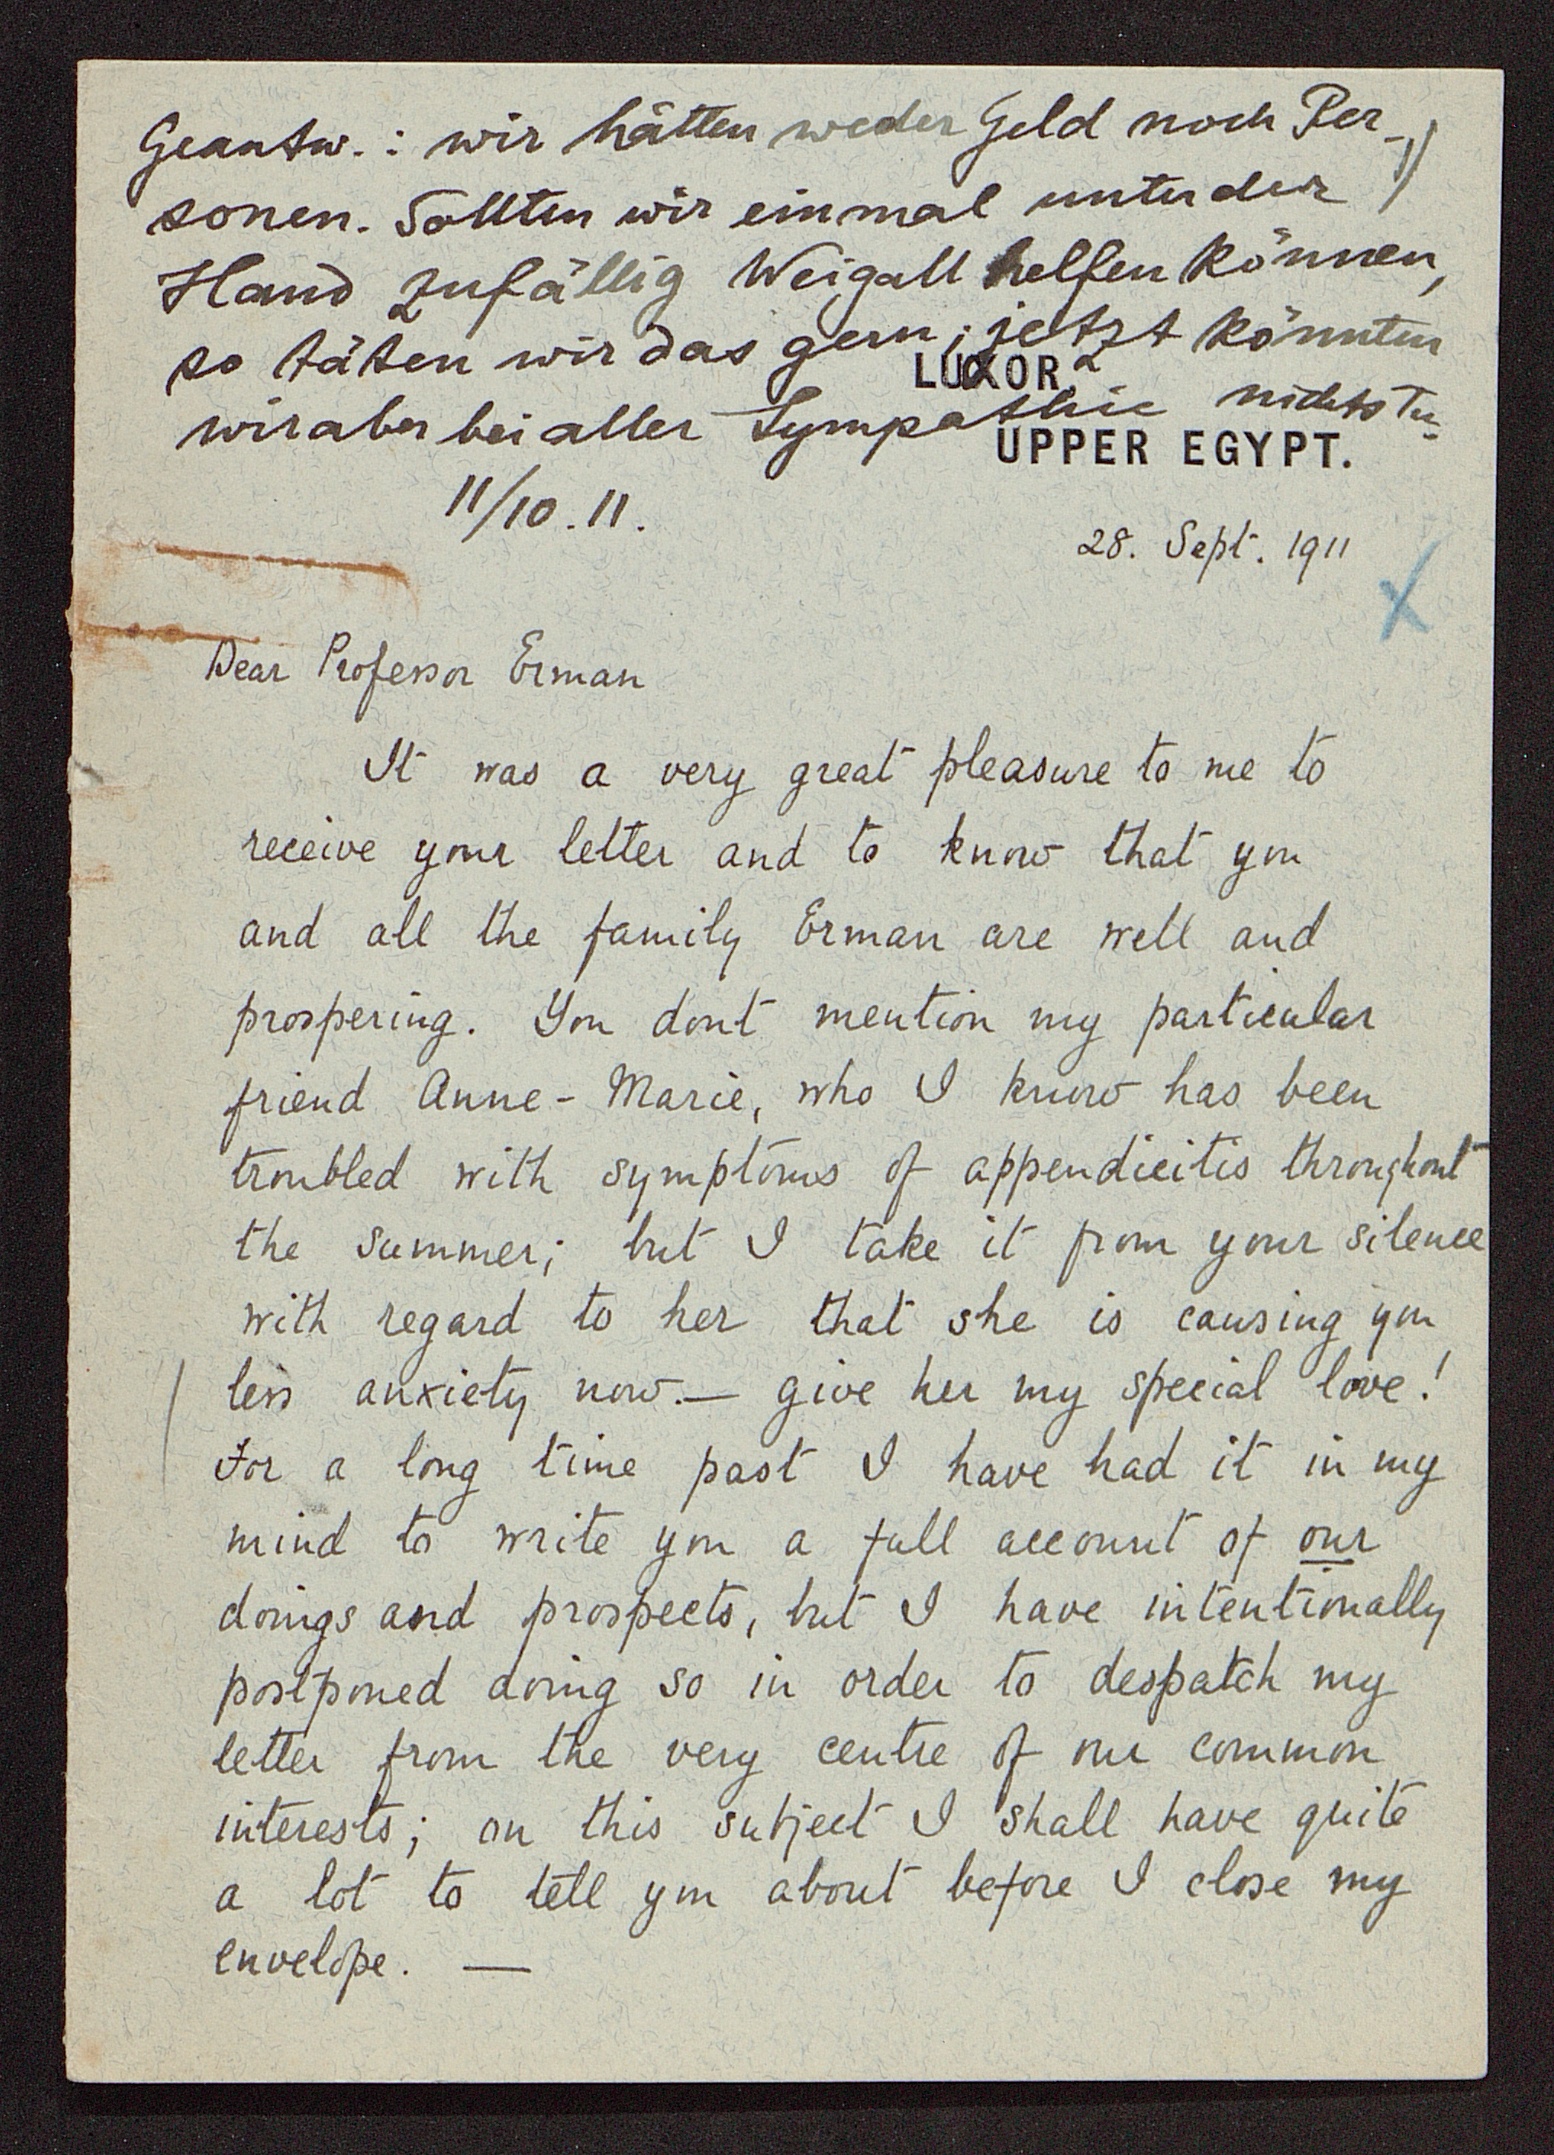 Geantw.: wir hätten weder Geld noch Per-
sonen. Sollten wir einmal unter der
Hand zufällig Weigall helfen können,
so täten wir das gern; jetzt könnten
wir aber bei aller Sympathie nichts tun
11/10.11.
LUXOR,
UPPER EGYPT.
28. Sept. 1911
Dear Professor Erman
It was a very great pleasure to me to
receive your letter and to know that you
and all the family Erman are well and
prospering. You dont mention my particular
friend Anne-Marie, who I know has been
troubled with symptoms of appendicitis throughout
the summer; but I take it from your silence
with regard to her that she is causing you
less anxiety now.— give her my special love!
For a long time past I have had it in my
mind to write you a full account of our
doings and prospects, but I have intentionally
postponed doing so in order to despatch my
letter from the very centre of our common
interests; on this subject I shall have quite
a lot to tell you about before I close my
envelope. —